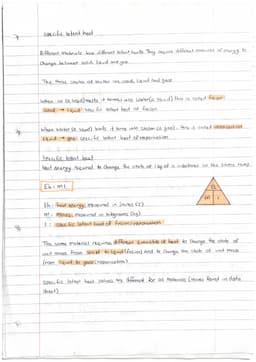 Specific latent heat
Different materials have different latent heats. They require different amounts of energy to
change between solid, liquid and gas.
The three states of water are solid, liquid and gas
When ice (a solid) melts it turns into water (a liquid) this is called fusion
Solid → liquid = specific latent heat of fusion.
When water (a liquid) boils it turns into steam (a gas), this is called vaporisation
Liquid → gas: specific latent heat of vaporisation.
Specific latent heat
Heat energy required to change the state of 1kg of a substance at the same temp.
Eh = ml
Eh
m l
Eh: heat energy, measured in Joules (J)
m: mass, measured in kilograms (kg)
l: specific latent heat of fusion/vaporisation
The same material requires different quantities of heat to change the state of
unit mass from solid to liquid (fusion) and to change the state of unit mass
from liquid to gas (vaporisation)
Specific latent heat values are different for all materials (values found in data
sheet)